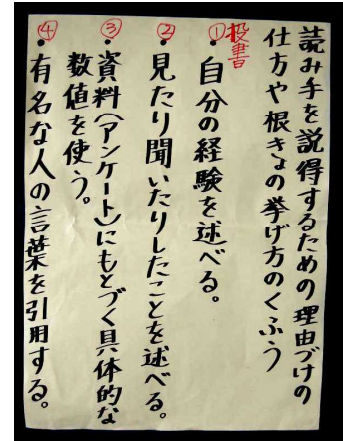 読み手を説得するための理由づけの
仕方や根きょの挙げ方のくふう
投書
①・自分の経験を述べる。
②・見たり聞いたりしたことを述べる。
③・資料(アンケート)にもとづく具体的な
数値を使う。
④・有名な人の言葉を引用する。